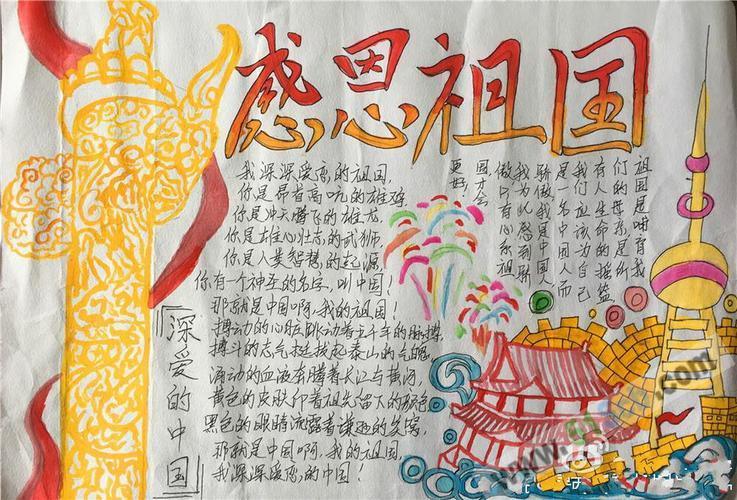 感恩祖国
我深深爱恋的祖国,
你是昂首高吭的雄鸡
你是冲天腾飞的雄龙
你是雄心壮志的武狮
你是人类智慧的起源,
你有一个神圣的名字,叫中国!
那就是中国啊,我的祖国!
搏动的心脏跳动着五千年的脉搏,
搏斗的志气挺拔起泰山的气魄,
涌动的血液奔腾着长江与黄河,
黄色的皮肤印着祖先留下的颜色
黑色的眼睛流露着谦逊的笑窝,
那就是中国啊,我的祖国,
我深深爱恋的中国!
深爱的中国
祖国是哺育我
们的母亲是所
有人生命的摇篮
我们应该为自己
是一名中国人而
骄傲,我是中国人
我为此感到骄
傲!只有心系祖
国才会
更好!